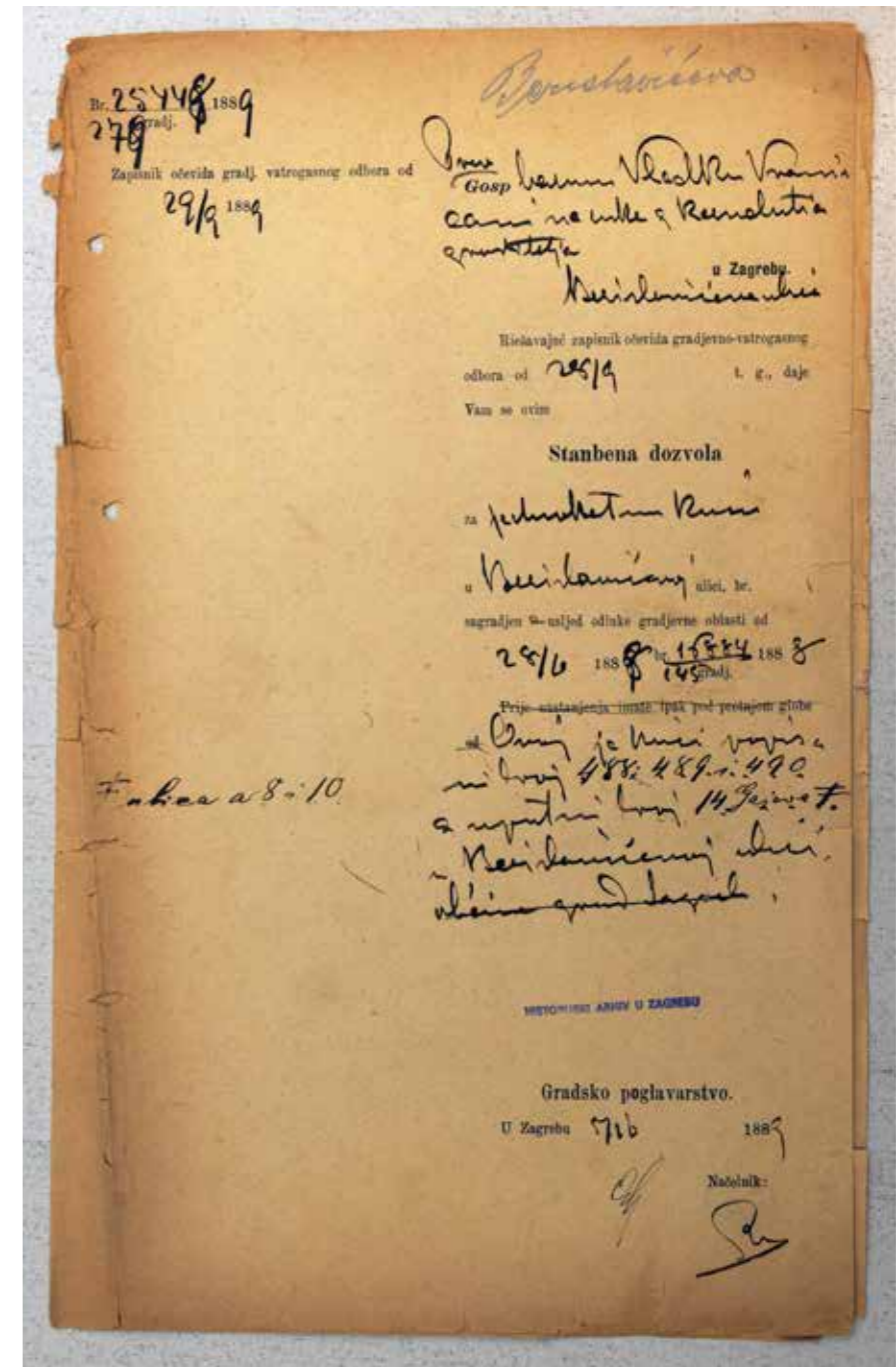 Berislavićeva
Br. 25448 1889
279 Gradj.
Zapisnik očevida gradj. vatrogasnog odbora od
29/9 1889
Gosp barunu Vladku Vrani
u Zagrebu.
Riešavajuć zapisnik očevida gradjevno-vatrogasnog
odbora od 29/9 t. g., daje
Vam se ovim
Stanbena dozvola
za jednokatnu kuću
u Berislavićevoj ulici, br.
sagradjen usljed odluke gradjevne oblasti od
28/6 1888 br. 188 8
145 gradj.
Prije nastanjenja imate ipak pod pretnjom globe
od Ovoj je kući popis
ni broj 488 i 489 i 490
a uputni broj 14 Gajeva F.
u Berislavićevoj ulici.
občine grad Zagreb.
F ulica a 8 i 10
HISTORIJSKI ARHIV U ZAGREBU
Gradsko poglavarstvo.
U Zagrebu 1889
Načelnik: